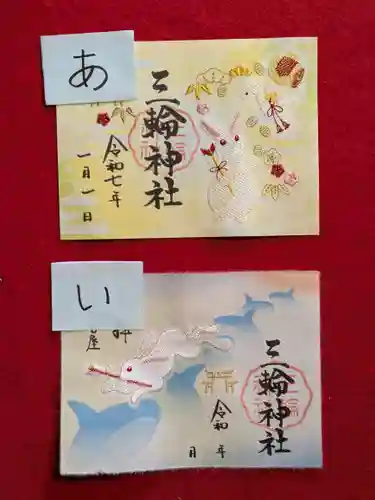 あ
三輪神社
令和七年
一月一日
い
三輪神社
令和 年
月